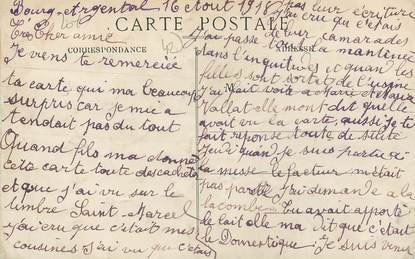 Bourg-Argental 16 aout 1918
CARTE POSTALE
CORRESPONDANCE
Tres cher amie
Je viens te remercié
ta carte qui ma beaucoup
surpris car je mia
tendait pas du tout
Quand filo ma donne
cette carte toute descachete
et que j'ai vu sur le
timbre Saint-Marcel
j'ai cru que c'était mes
cousines j'ai vu que c'était
pas leur écriture
j'ai cru que c'était
de tur camarades
j'ai passe la matinée
dans l'inquitude et quan les
filles sont sortit de l'usine
j'ai été voir a Marie et
Vallat elle mont dit quelle
avait vu la carte, aussi je te
fait réponse toute de suite
Jeudi quand je suis partie a
la messe le facteur m'était
pas passé j'ai demandé a la
lacombe si tu avait apporté
le lait elle ma dit que c'était
le Domestique; Je suis venu